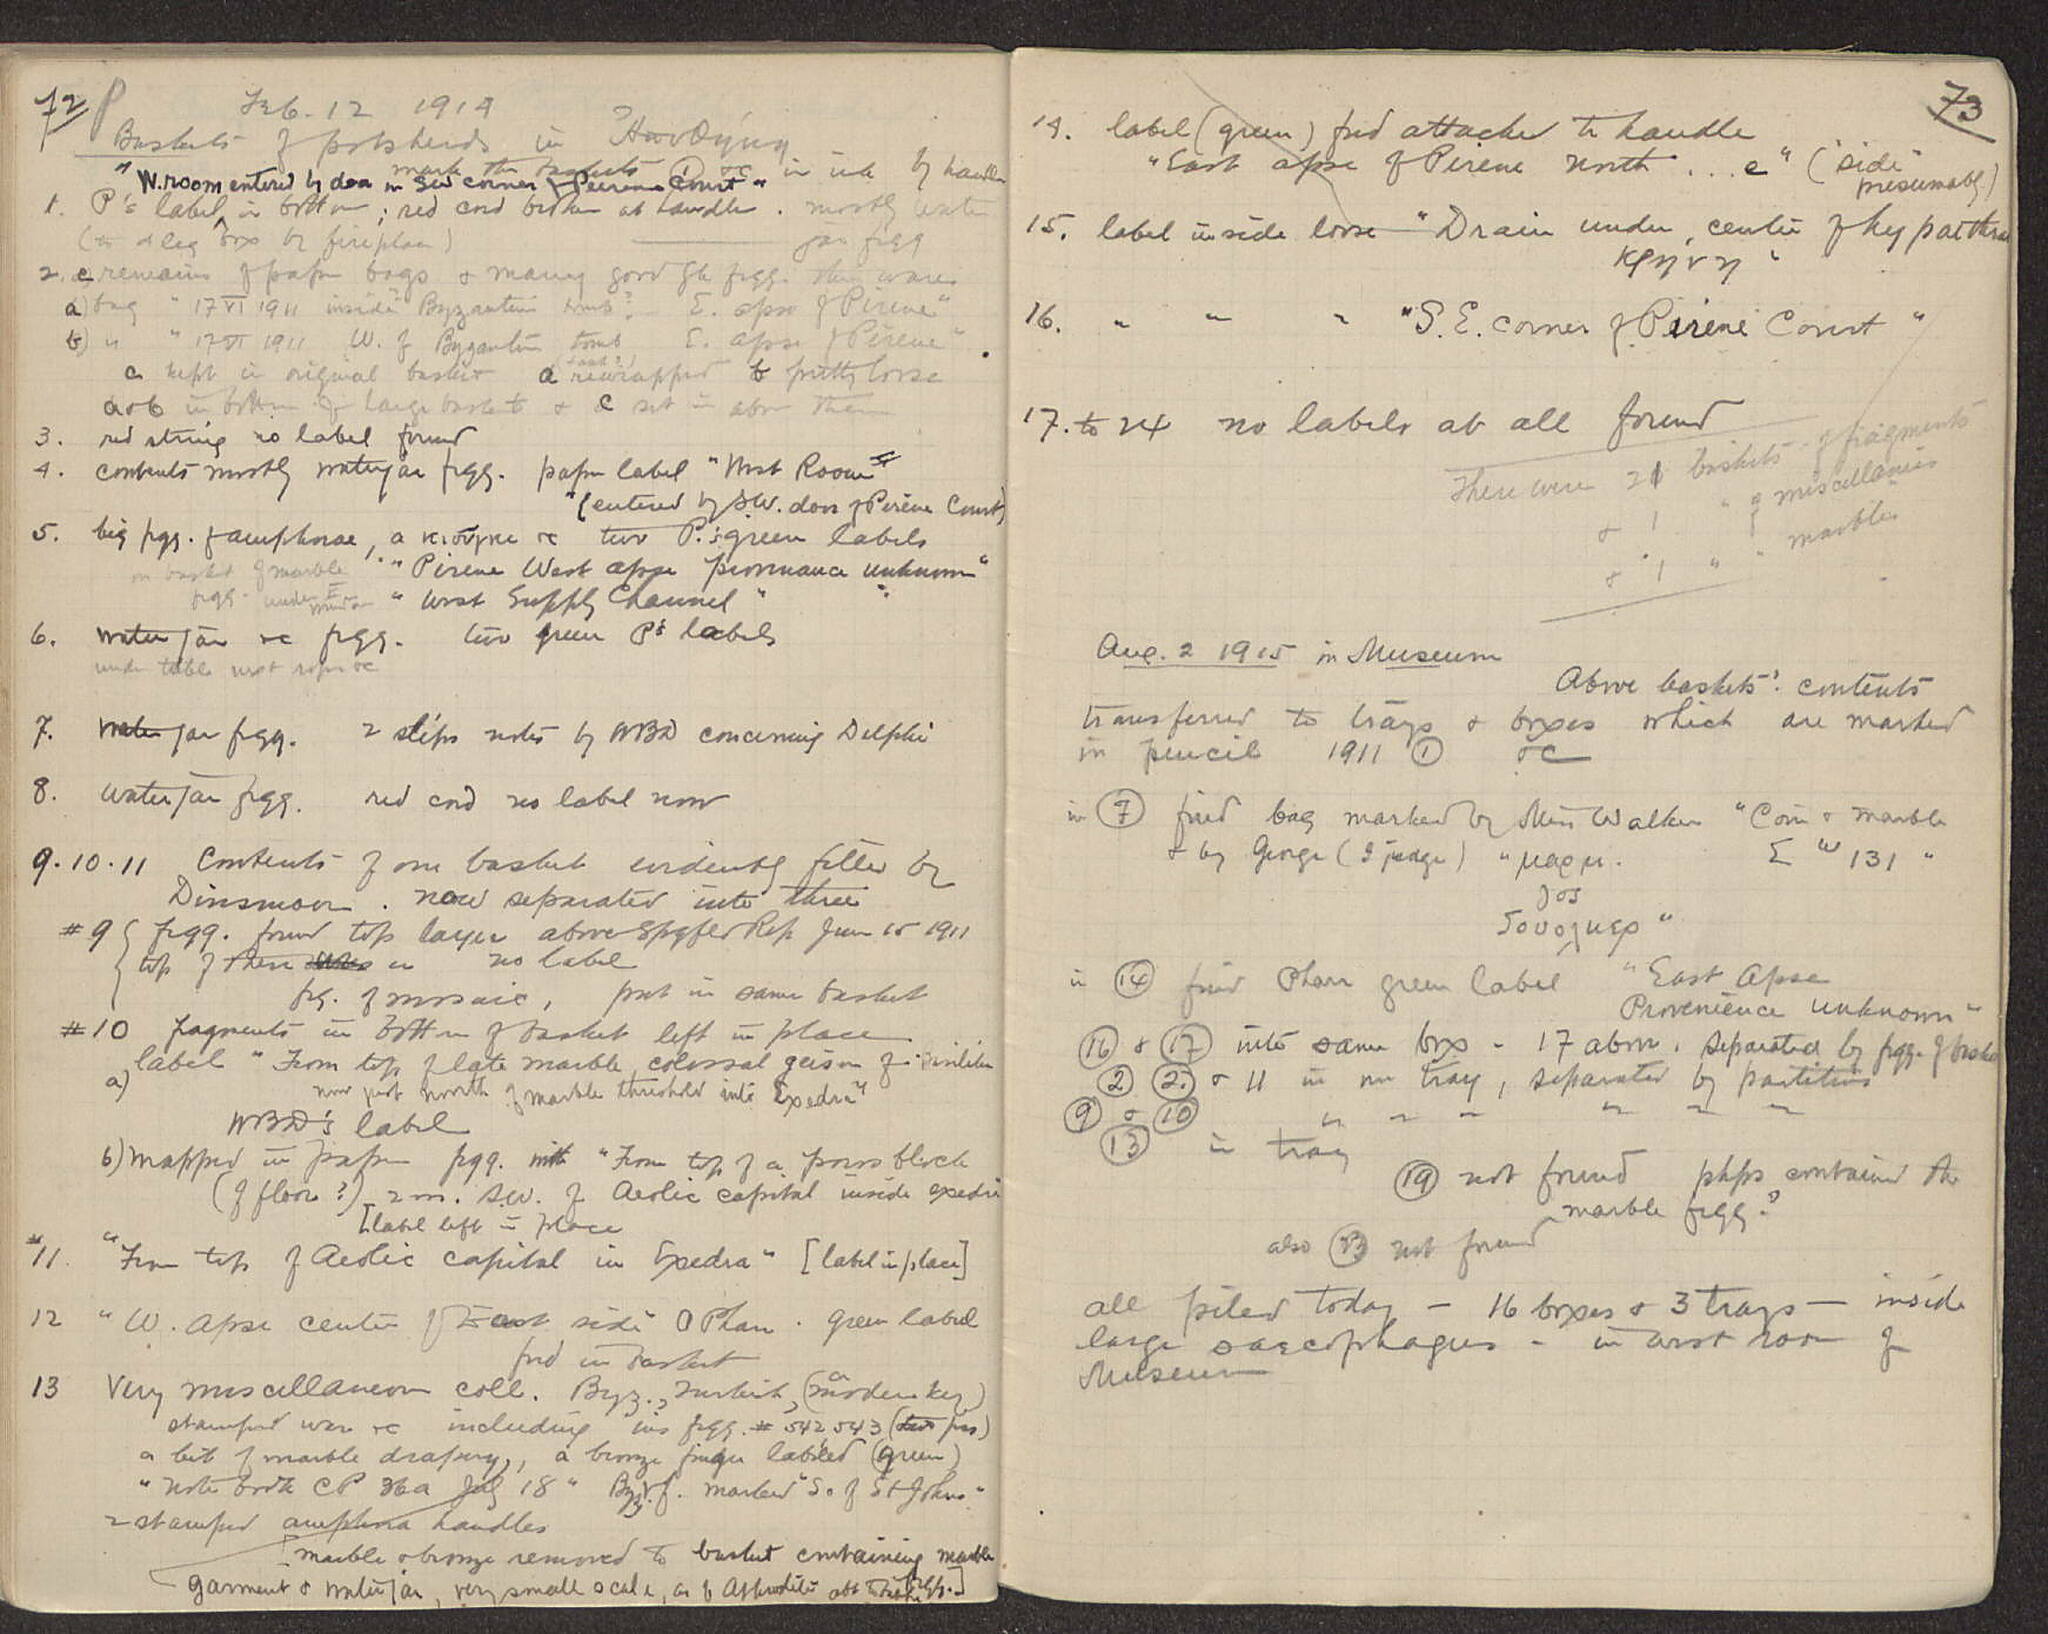 72 P
Feb. 12 1914
Baskets of potsherds in
mark the baskets ① &c in ink by handle
"W. room entered by door in SW corner of Peirene Court"
1. P's label in bottom; red cord broken at handle. mostly water
jar frgg
2. c remains of paper bags & many good Gk frgg. thin ware
a) bag "17 VI 1911 inside Byzantine tomb? E. apse of Pirene"
b) " "17 VI 1911 W. of Byzantine tomb E. apse of Pirene"
c kept in original basket a rewrapped b pretty loose
a & b in bottom of large basket & c set in above them
3. red string no label found
4. contents mostly waterjar frgg. paper label "West Room"
"(entered by S.W. door of Pirene Court)
5. big frgg. of amphorae, a &c two P.'s green labels
on basket of marble "Pirene West apse provenance unknown"
frgg. under "West Supply Channel"
6. water jar &c frgg. two green P's labels
under table next
7. water jar frgg. 2 slips notes by WBD concerning Delphi
8. waterjar frgg. red cord no label now
9. 10. 11 Contents of one basket evidently filled by
Dinsmoor. now separated into three
#9 frgg. found top layer above June 15 1911
top of these no label
frg. of mosaic, put in same basket
#10 fragments in bottom of basket left in place
a) label "From top of late marble colossal geison of
now just north of marble threshold into Exedra"
WBD's label
b) wrapped in paper frgg. with "From top of a poros block
(of floor?) 2 m. S.W. of Aeolic capital inside exedra
[label left in place
#11. "From top of Aeolic capital in Exedra" [label in place]
12 "W. Apse center of East side O Pharr. green label
fnd in basket
13 Very miscellaneous coll. Byz., Turkish, (modern key)
stamped ware &c including ins frgg. # 542, 543 (two pcs)
a bit of marble drapery, a bronze finger labeled (green)
"Note book CP 36a July 18" Byz. marked "S. of St Johns"
2 stamped amphora handles
[marble & bronze removed to basket containing marble
garment & waterjar, very small scale, as of Aphrodite
73
14. label (green) fnd attached to handle
"East apse of Pirene north ... e" ("side"
presumably)
15. label inside loose "Drain under center of hypaethral
κρηνη"
16. " " " "S.E. corner of Pirene Court"
17. to 24 no labels at all found
There were 21 baskets of fragments
& 1 " of miscellanies
& 1 " " marbles
Aug. 2 1915 in Museum
Above baskets' contents
transferred to trays & boxes which are marked
in pencil 1911 ① &c
in ⑦ find bag marked by Miss Walker "Coin & marble
& by George (I judge) "μαρμ. Σ 131"
in ⑭ find Pharr green label "East Apse
Provenience unknown"
⑯ & ⑰ into same box - 17 above, separated by frgg. of basket
② & 11 in one tray, separated by partition
⑨ & ⑩ " " " " " "
⑬ in tray
⑲ not found phps contained the
marble frgg?
also not found
all piled today — 16 boxes & 3 trays — inside
large sarcophagus - in west room of
Museum